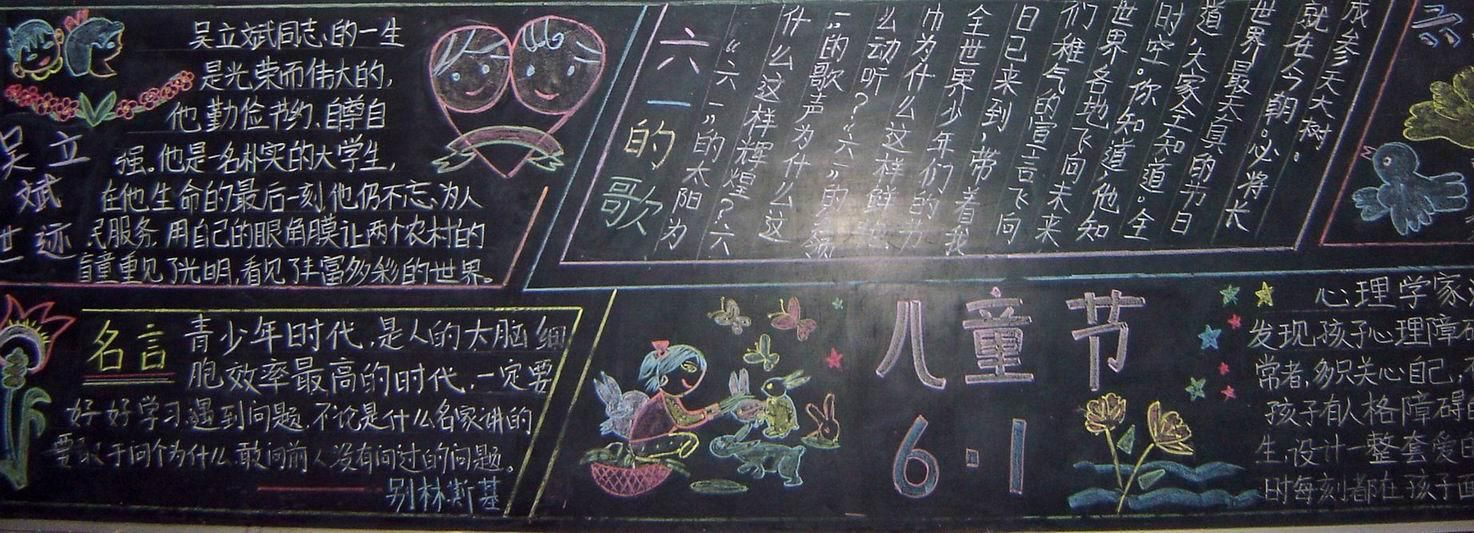 吴立斌同志的一生
是光荣而伟大的,
他勤俭节约、自尊自
强。他是一名朴实的大学生,
在他生命的最后一刻他仍不忘为人
民服务,用自己的眼角膜让两个农村的
盲童重见了光明,看见了丰富多彩的世界。
吴立
斌
世迹
六一的歌
成参天大树。
就在今朝。必将长
世界最天真的节日
道,大家全知道。全
时空。你知道,他知
世界各地飞向未来
们稚气的宣言飞向
日已来到,带着我
全世界少年们的节
巾为什么这样鲜
么动听?“六一”的
一”的歌声为什么这
什么这样辉煌?“六
“六一”的太阳为
名言
青少年时代,是人的大脑细
胞效率最高的时代,一定要
好好学习遇到问题,不论是什么名家讲的
要敢于问个为什么,敢问前人没有问过的问题。
别林斯基
儿童节
6·1
心理学家
发现,孩子心理障碍
常者,多只关心自己,
孩子有人格障碍的
生,设计一整套爱的
时每刻都在孩子面